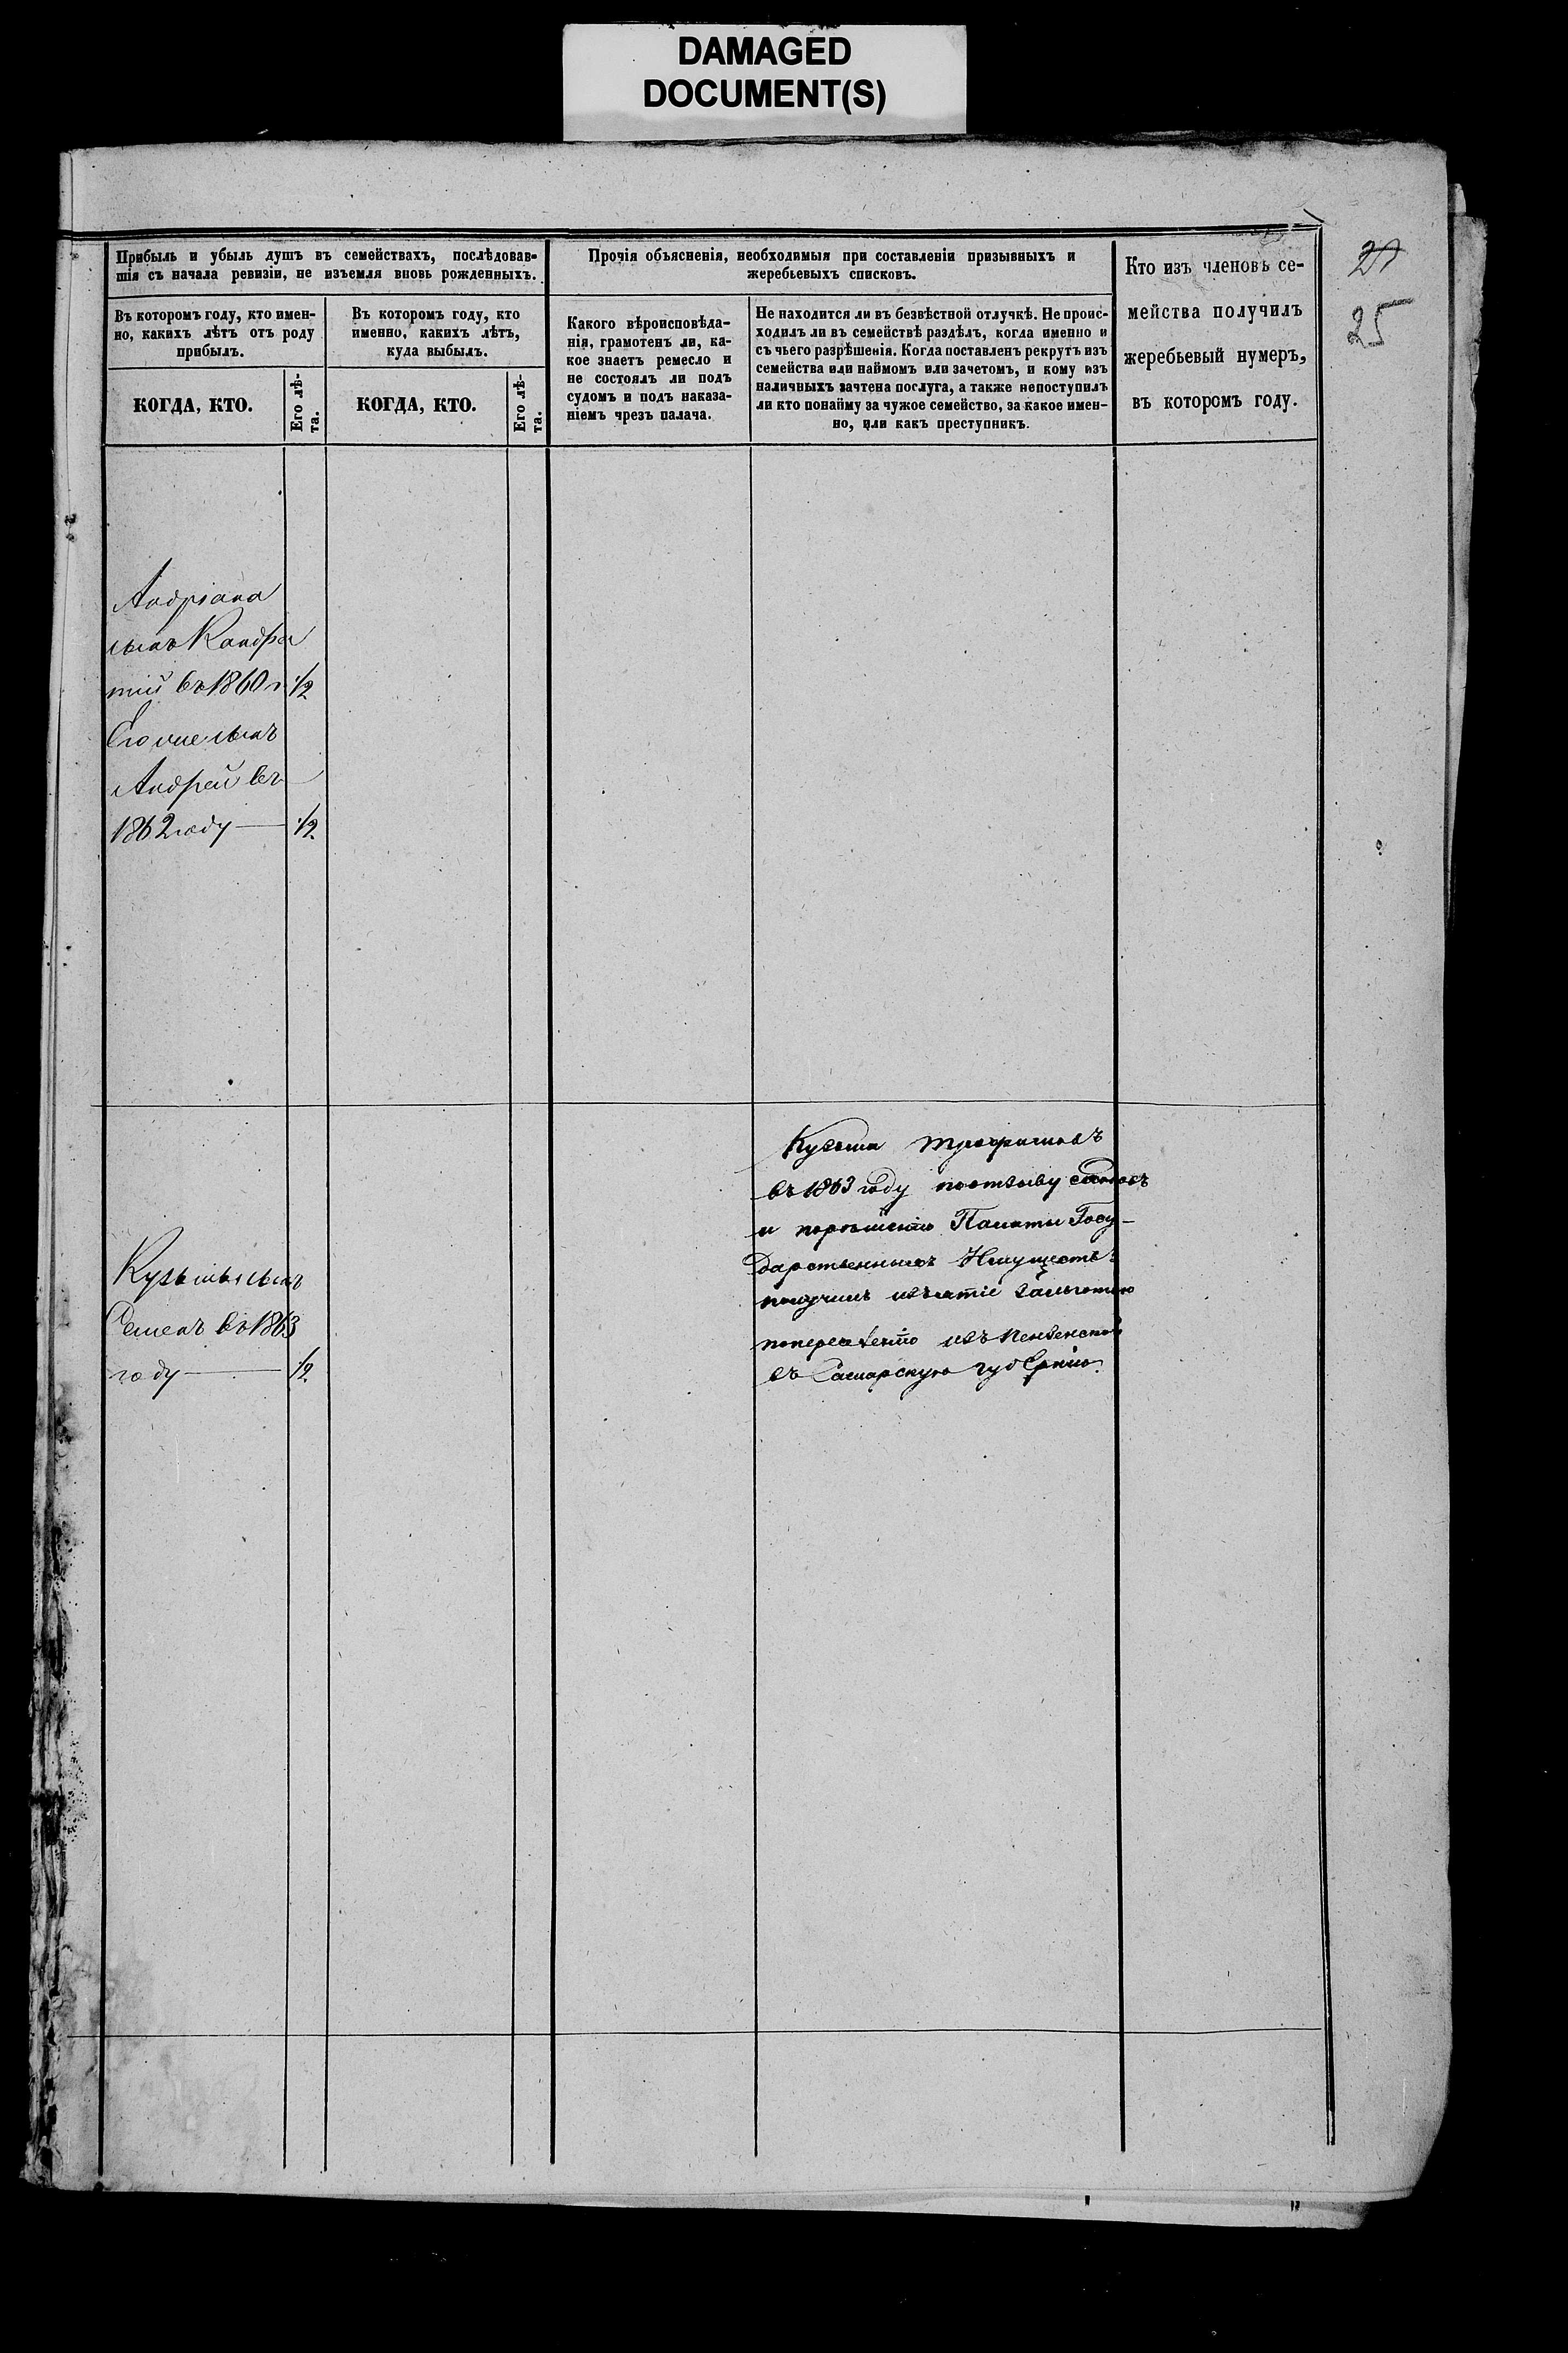 DAMAGED
DOCUMENT(S)
Прибыль и убыль душъ въ семействахъ, послѣдовав-
шія съ начала ревизіи, не изъемля вновь рожденныхъ.
Прочія объясненія, необходимыя при составленіи призывныхъ и
жеребьевыхъ списковъ.
Кто изъ членовъ се-
мейства получилъ
жеребьевый нумеръ,
въ которомъ году.
25
Въ которомъ году, кто имен-
но, какихъ лѣтъ отъ роду
прибылъ.
Въ которомъ году, кто
именно, какихъ лѣтъ,
куда выбылъ.
Какого вѣроисповѣда-
нія, грамотенъ ли, ка-
кое знаетъ ремесло и
не состоялъ ли подъ
судомъ и подъ наказа-
ніемъ чрезъ палача.
Не находится ли въ безвѣстной отлучкѣ. Не проис-
ходилъ ли въ семействѣ раздѣлъ, когда именно и
съ чьего разрѣшенія. Когда поставленъ рекрутъ изъ
семейства или наймомъ или зачетомъ, и кому изъ
наличныхъ зачтена послуга, а также непоступилъ
ли кто понайму за чужое семейство, за какое имен-
но, или какъ преступникъ.
КОГДА, КТО.
Его лѣ-
та.
КОГДА, КТО.
Его лѣ-
та.
Андріана
сынъ Кандра
тій въ 1860 г. 1/2
Его же сынъ
Андрей въ
1862 году 1/2
Кузьмы сынъ
Семенъ въ 1863
году 1/2
Кузьма Трофимовъ
въ 1863 году
и Палаты Госу-
дарственныхъ Имуществъ
получилъ изъятіе
изъ Пензенской
въ Самарскую губернію.